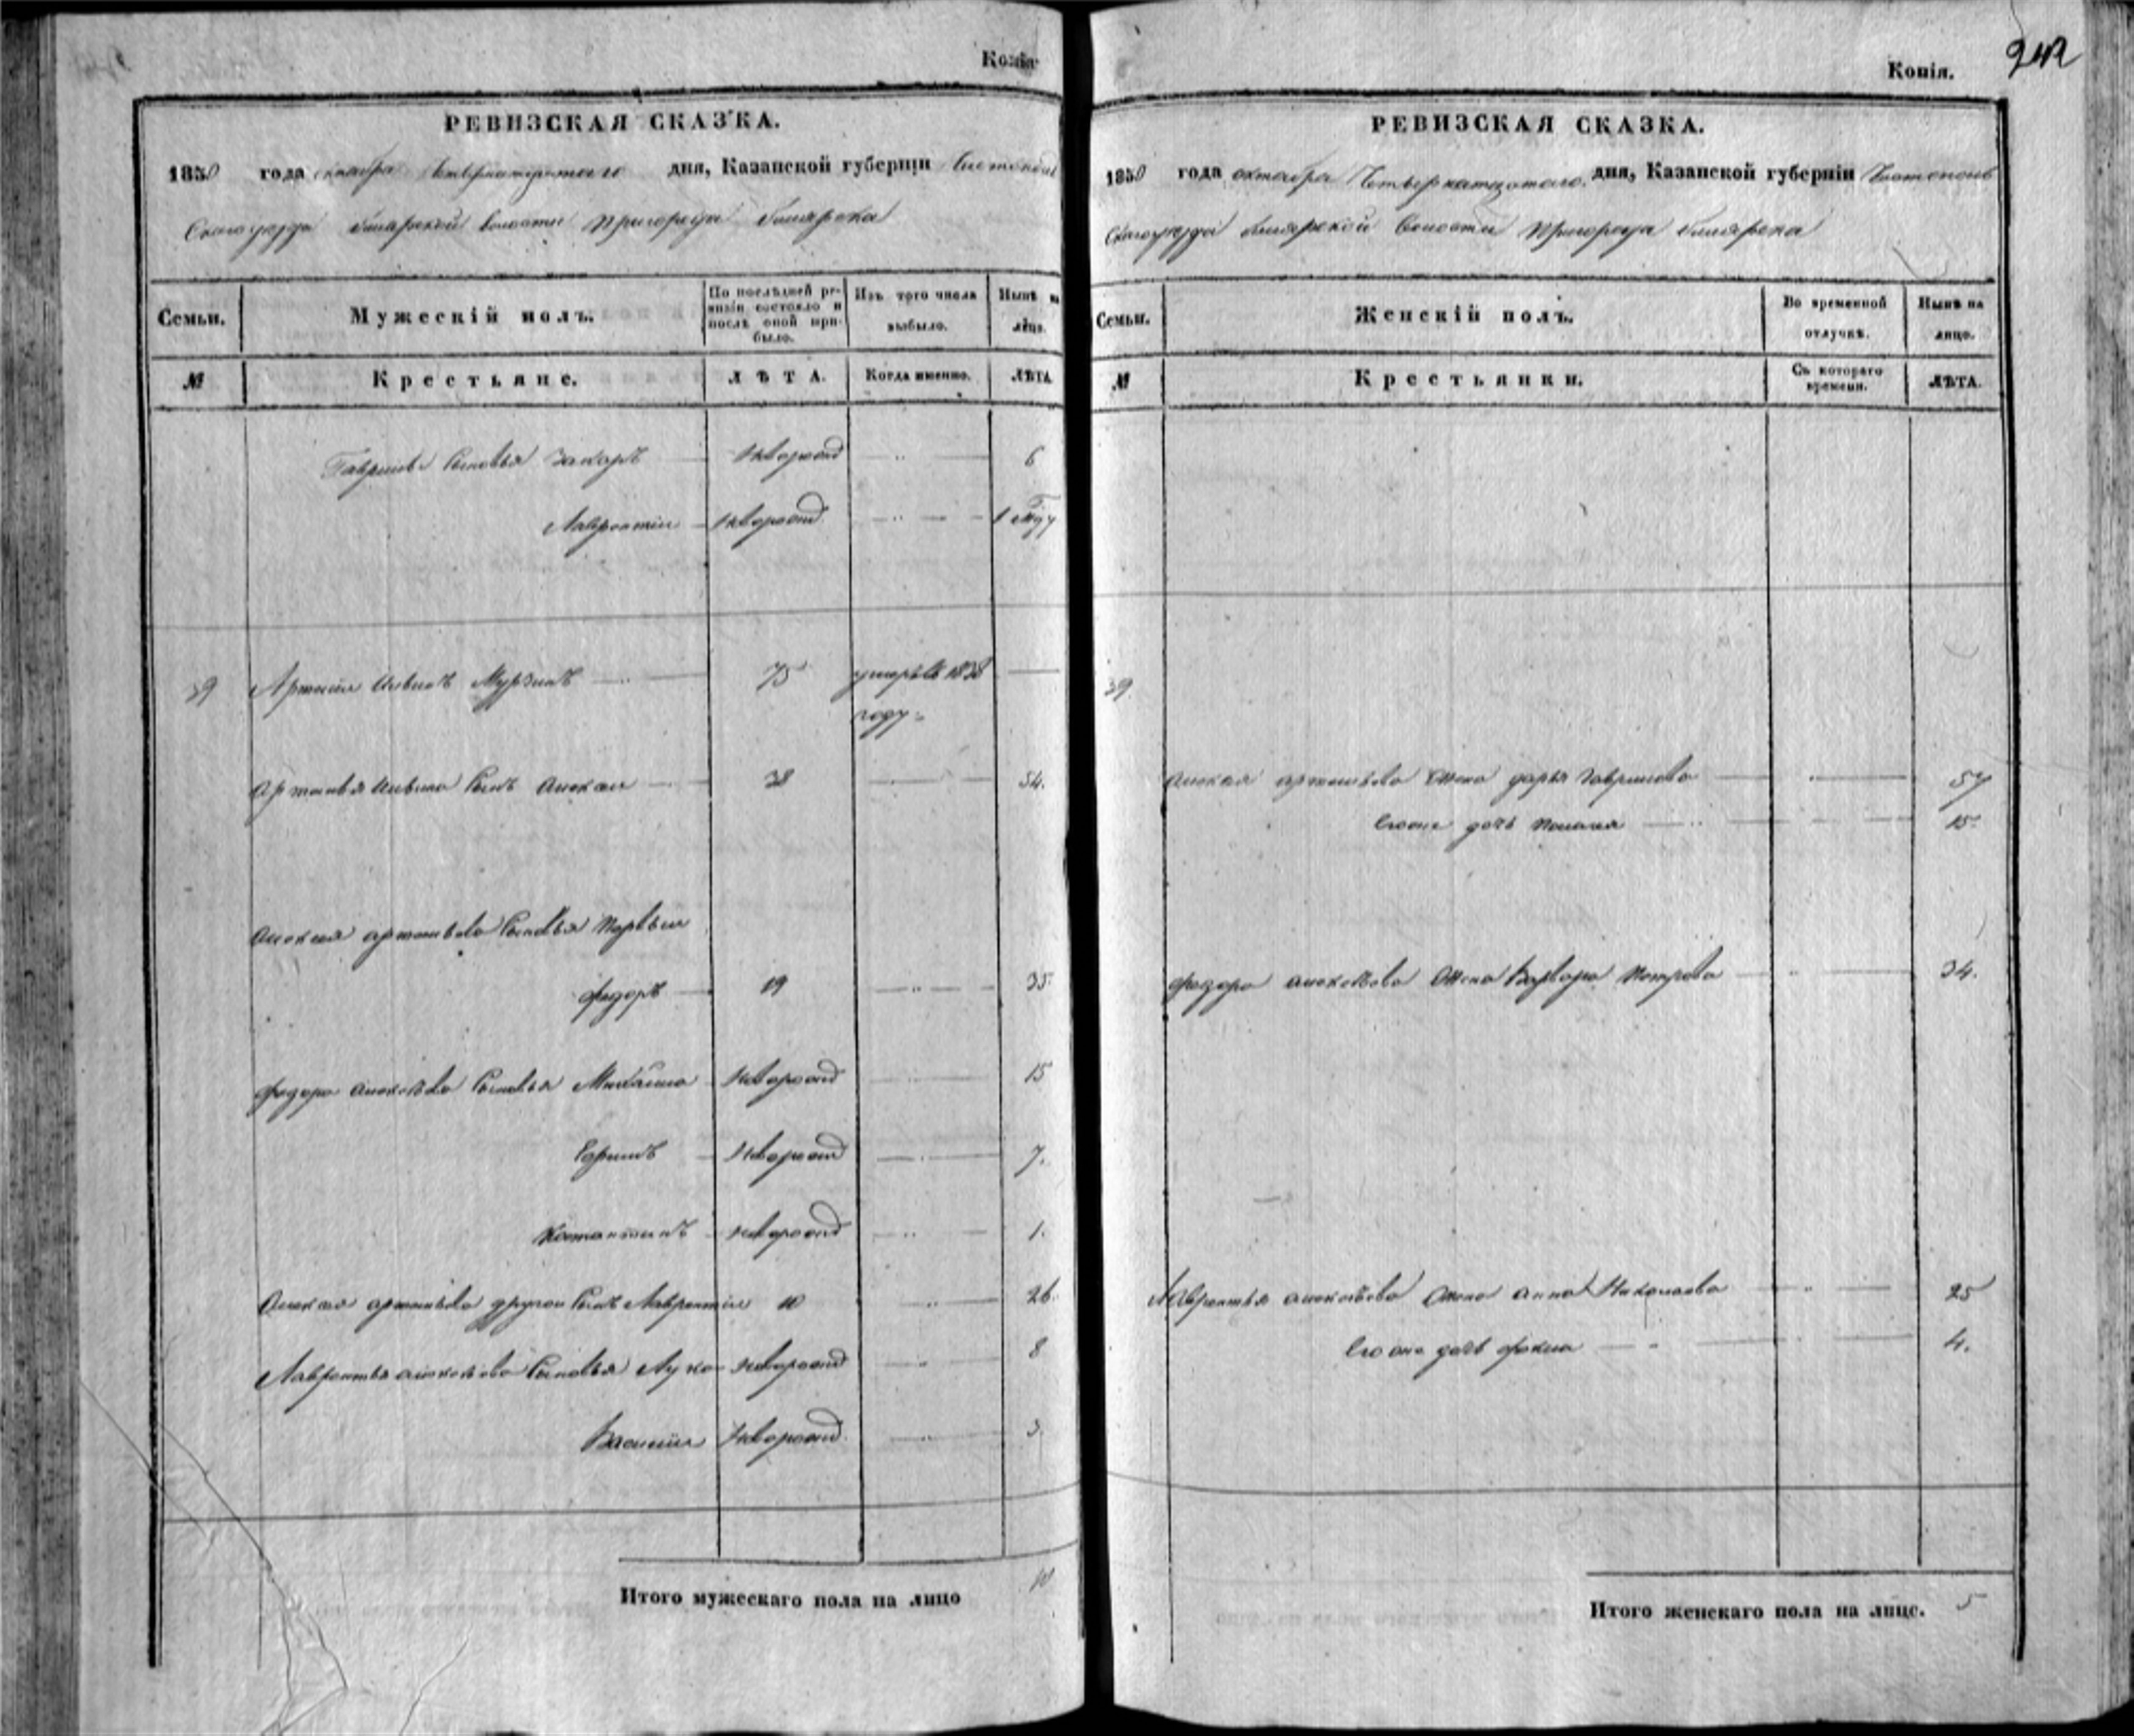 Копія
РЕВИЗСКАЯ СКАЗКА.
1850 года октября четырнатцатого дня, Казанской губерніи Чистополь
скаго уезда билярской волости пригорода билярска
Семьи.
Мужескій полъ.
По послѣдней ре-
визіи состояло и
послѣ оной при-
было.
Изъ того числа
выбыло.
Нынѣ на
лицо.
№
Крестьяне.
ЛѢТА.
Когда именно.
ЛѢТА
Гаврилы сыновья Захаръ новорожд 6
Лаврентий новорожд 1 году
39 Артемий Ивановъ Мурзинъ 75 умеръ в 1838
году
сынъ Алексей 38 54.
Алексея артемьева сыновья первый
Федоръ 19 35.
Федора алексеева сыновья Михайла новорожд 15
Ефимъ новорожд 7.
Костантинъ новорожд 1.
Алексея артемьева другой сынъ Лаврентий 10 26.
Лаврентья алексеева сыновья Лука новорожд 8
Василий новорожд 3
Итого мужескаго пола на лицо 10
242
Копія.
РЕВИЗСКАЯ СКАЗКА.
1850 года октября Четырнатцатого дня, Казанской губерніи Чистополь
скаго уезда билярской волости пригорода билярска
Семьи.
Женскій полъ.
Во временной
отлучкѣ.
Нынѣ на
лицо.
№
Крестьянки.
Съ котораго
времени.
ЛѢТА.
39.
Алексея артемьева жена дарья гаврилова 57
его дочь 15
Федора алексеева жена Варвара петрова 34.
Лаврентья алексеева жена анна Николаева 25
его дочь 4.
Итого женскаго пола на лицо. 5